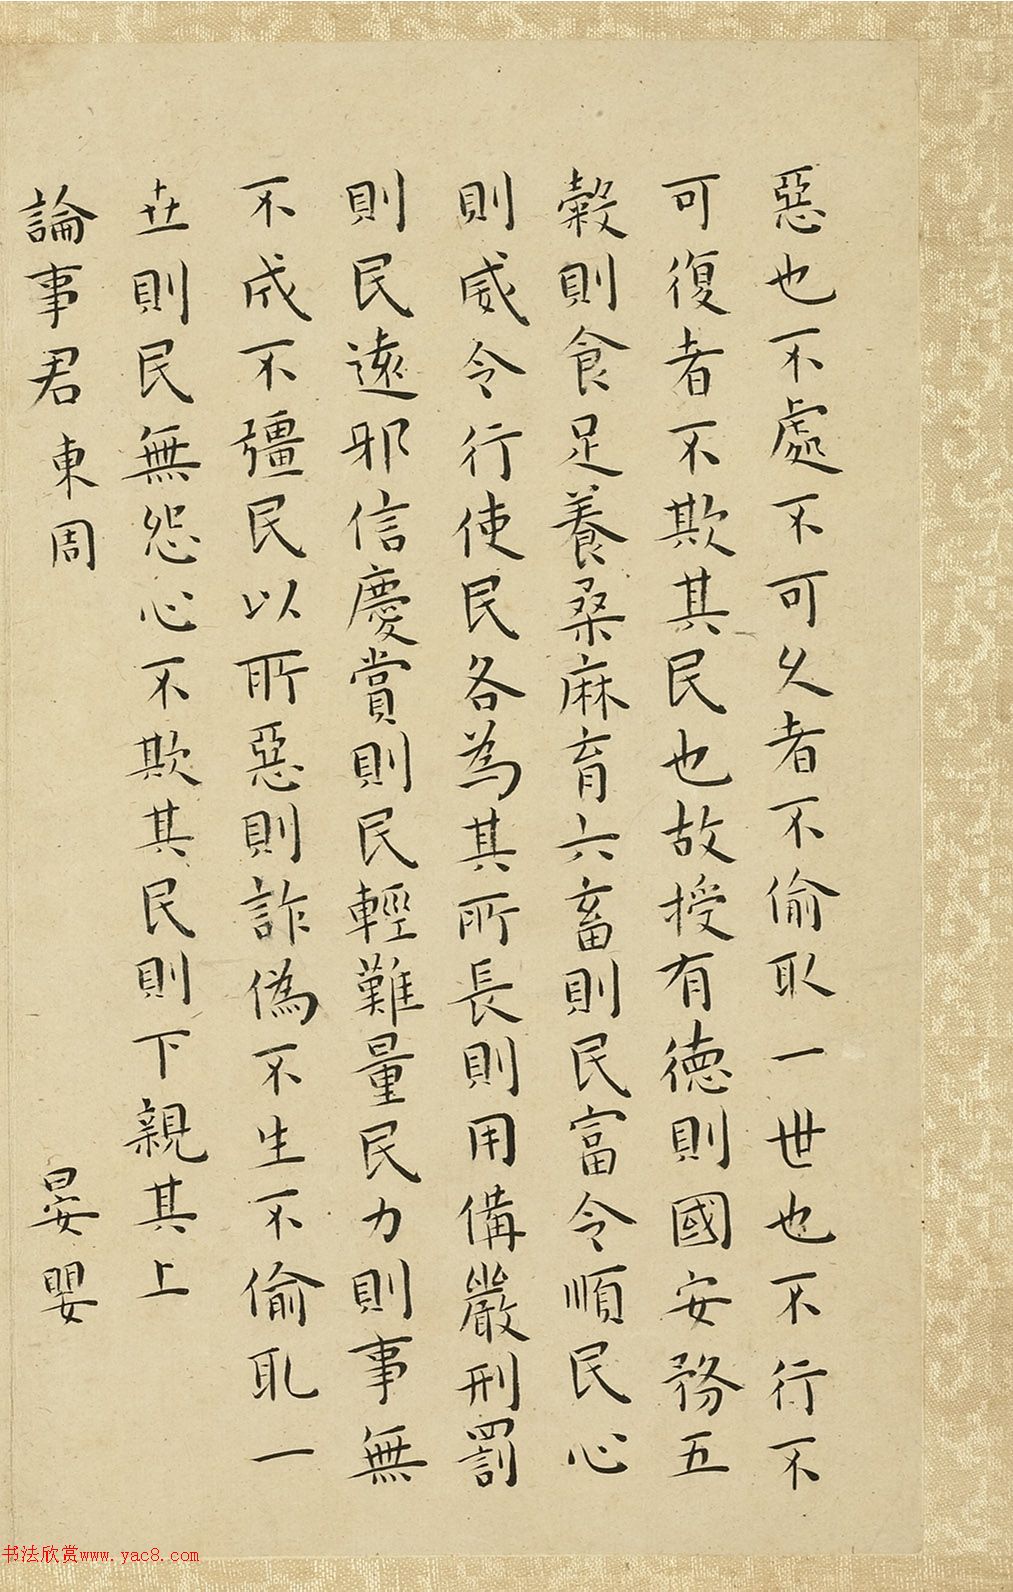 惡也不處不可久者不偷取一世也不行不
可復者不欺其民也故授有德則國安務五
穀則食足養桑麻育六畜則民富令順民心
則威令行使民各為其所長則用備嚴刑罰
則民遠邪信慶賞則民輕難量民力則事無
不成不彊民以所惡則詐偽不生不偷取一
世則民無怨心不欺其民則下親其上
論事君東周 晏嬰
书法欣赏www.yac8.com